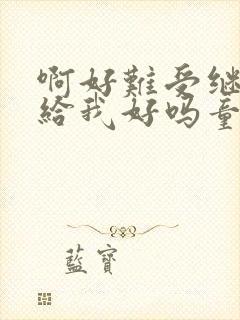 啊好難受继
給我好吗童
藍寶